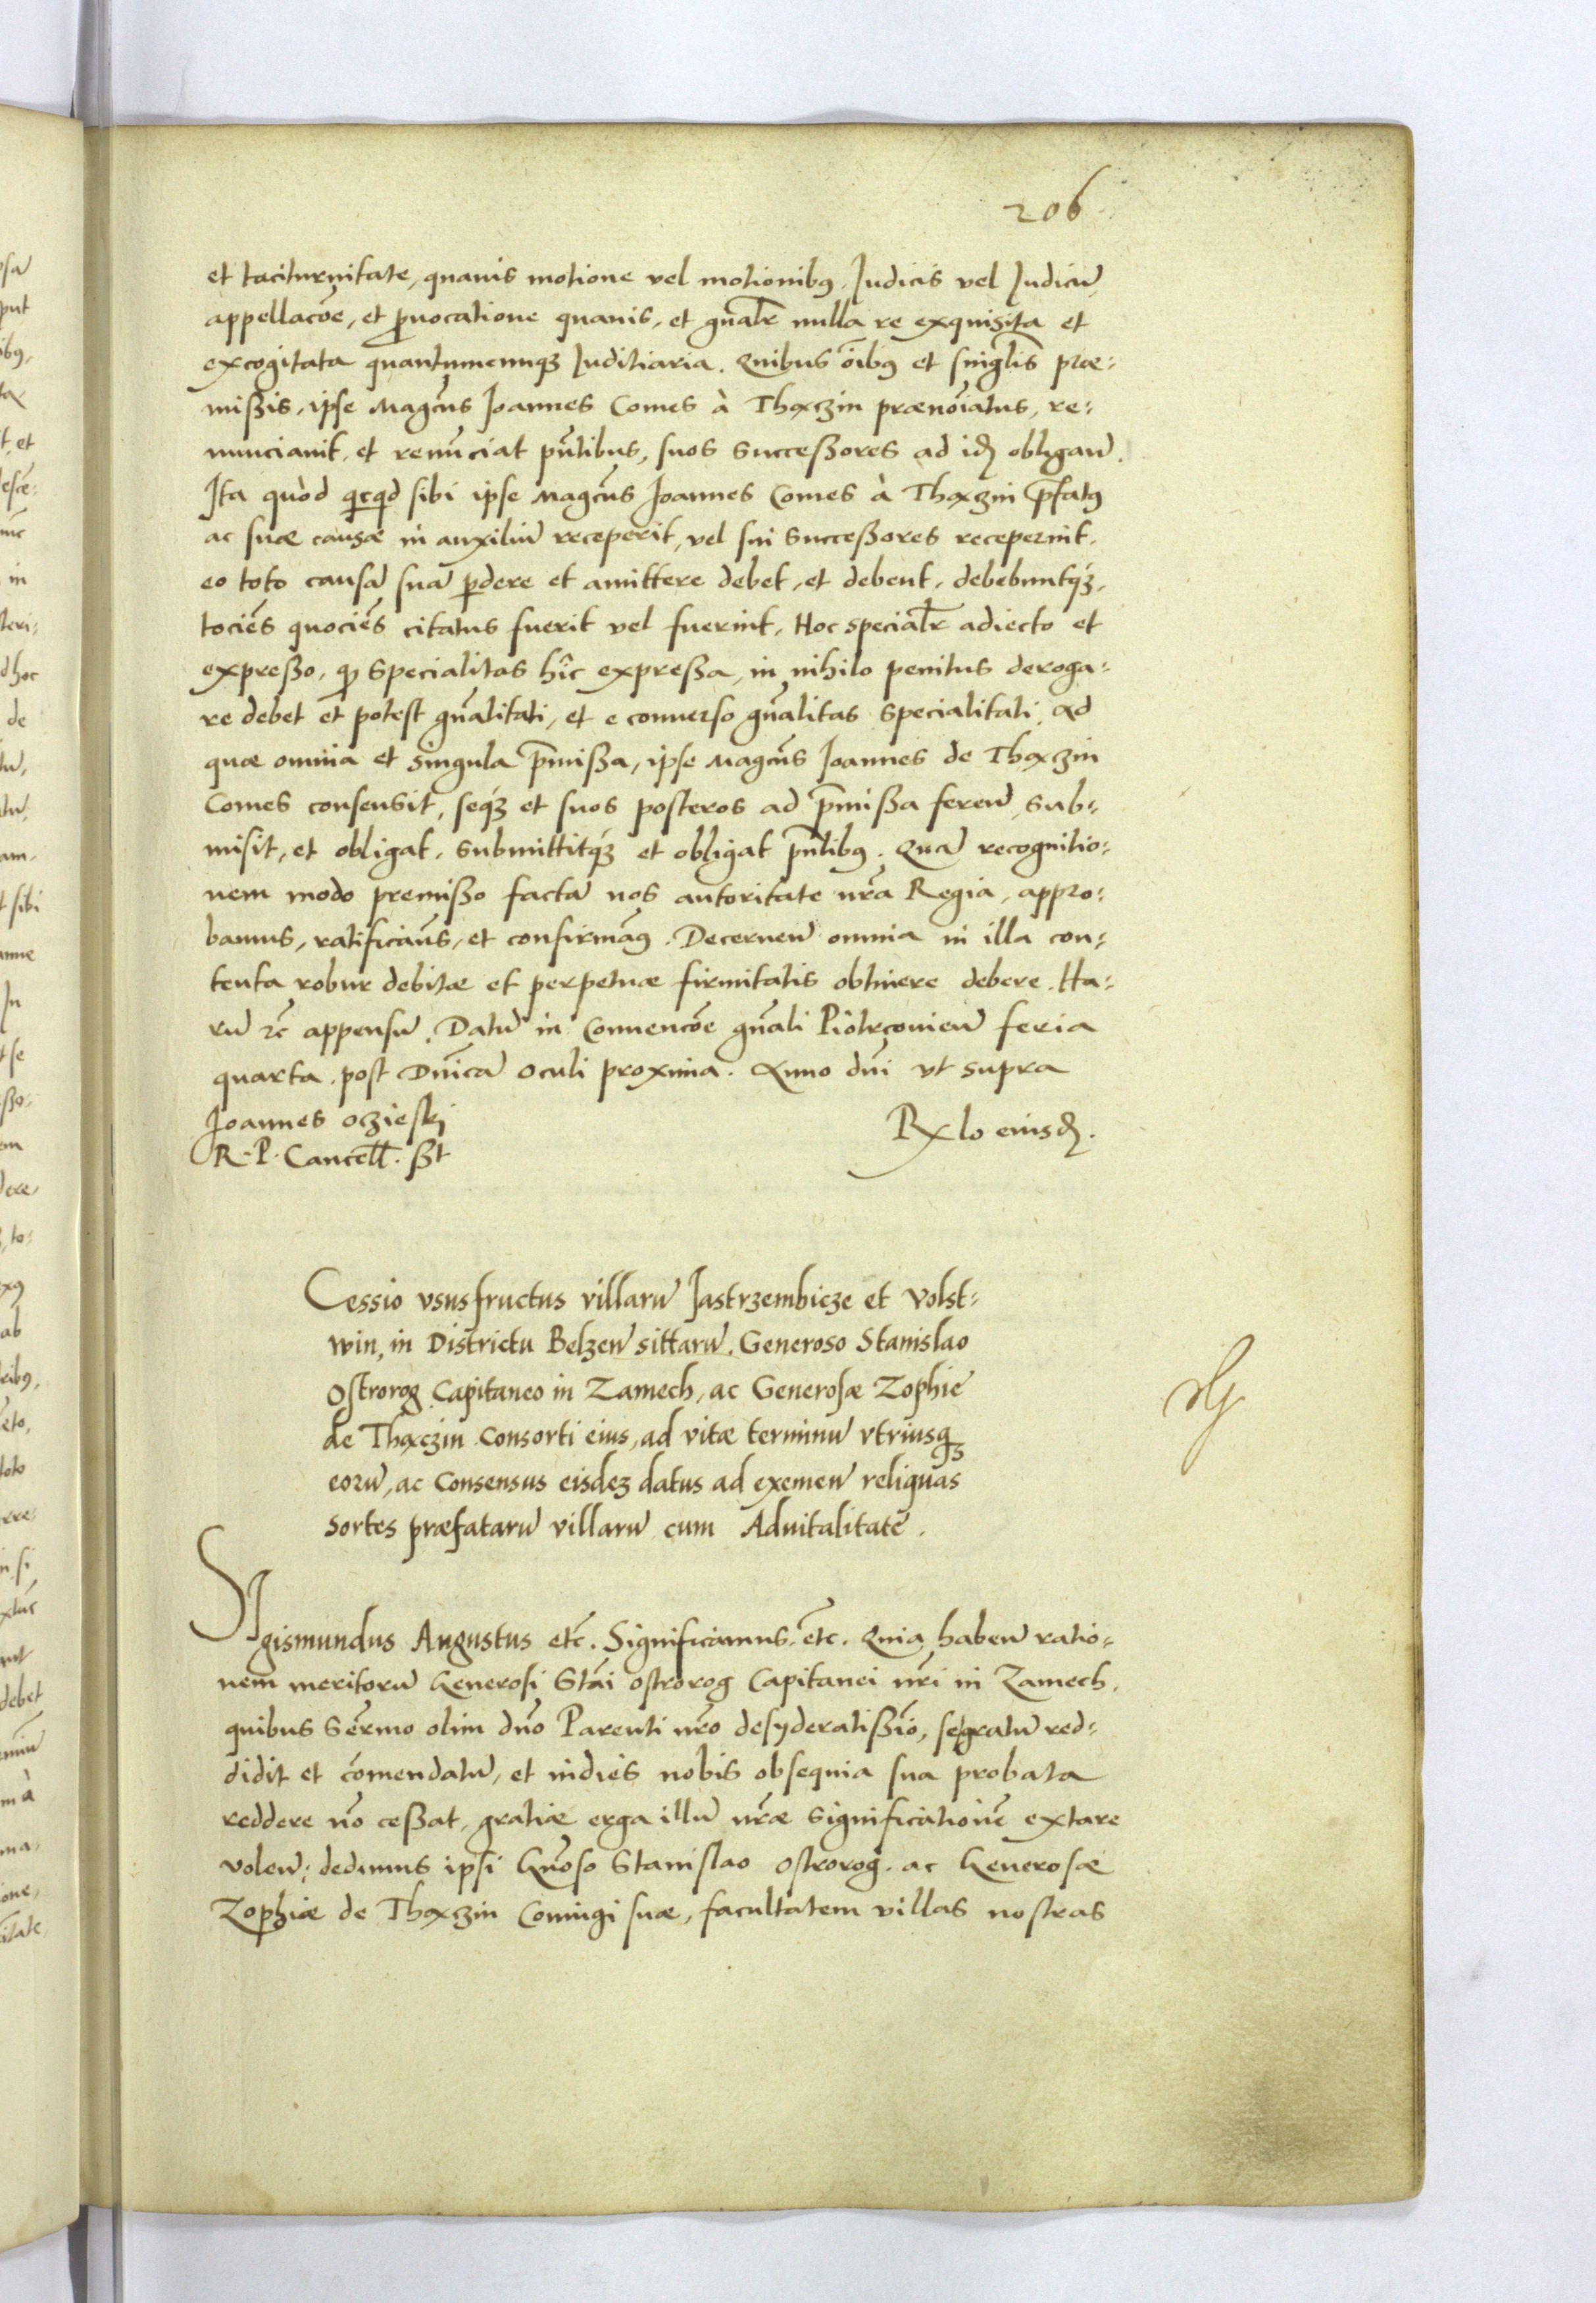 206
et taciturnitate, quauis motione vel motionibꝯ, Judicis vel Judicū,
appellacōe, et ꝓuocatione quauis, et gnalr̄ nulla re exquisita et
excogitata quantumcunqꝫ Juditiaria. Quibus oībꝯ et singłis præ-
missis, ipse Magcūs Joannes Comes à Thaxczin prænoīatus, re-
nunciauit, et renunciat pn̄tibus, suos Successores ad id obligan̄.
Ita quòd qicqd sibi ipse Magcūs Joannes Comes à Thaxczin p̄fatꝯ
ac suæ causæ in auxiliū receperit, vel sui Successores receperint,
eo toto causā suā ꝑdere et amittere debet, et debent, debebuntqꝫ,
tociēs quociēs citatus fuerit vel fuerint, Hoc specialr̄ adiecto et
expresso, ꝙ Specialitas hîc expressa, in nihilo penitus deroga-
re debet et potest gn̄alitati, et e conuerso gn̄alitas Specialitati. Ad
quæ omnia et singula p̄missa, ipse Magcūs Joannes de Thaxczin
Comes consensit, seqꝫ et suos posteros ad p̄missa feren̄, sub-
misit, et obligat, submittitqꝫ et obligat pn̄tibꝯ. Quā recognitio-
nem modo premisso factā nos autoritate nrā Regia, appro-
bamus, ratificam̄s, et confirmāꝯ. Decernen̄ omnia in illa con-
tenta robur debitæ et perpetuæ firmitatis obtinere debere. Ha-
rū rc̄ appensū. Datū in Conuencōe gn̄ali Piotrcouien̄ feria
quarta post Dn̄icā Oculi proxima. Anno dn̄i vt supra
Joannes Oczieskj
R. P. Cancell. sst
Rxlo eiusd.
Cessio vsusfructus villarū Jastrzembicze et Volst-
win, in Districtu Belzen̄ sittarū. Generoso Stanislao
Ostrorog Capitaneo in Zamech, ac Generosæ Zophie
de Thaxczin Consorti eius, ad vitæ terminū vtriusqꝫ
eorū, ac Consensus eisdeꝫ datus ad exemen̄ reliquas
Sortes præfatarū villarū cum Aduitalitate.
SJgismundus Augustus etc̄. Significamus, etc̄. Quia haben̄ ratio-
nem meritorū Generosi Stāi Ostrorog Capitanei nr̄i in Zamech,
quibus Sermo olim dn̄o Parenti nr̄o desyderatissīo, se gratū red-
didit et cōmendatū, et indies nobis obsequia sua probata
reddere nō cessat, gratiæ erga illū nr̄æ significationē extare
volen̄: dedimus ipsi Gn̄oso Stanislao Ostrorog, ac Generosæ
Zophiæ de Thaxczin Coniugi suæ, facultatem villas nostras